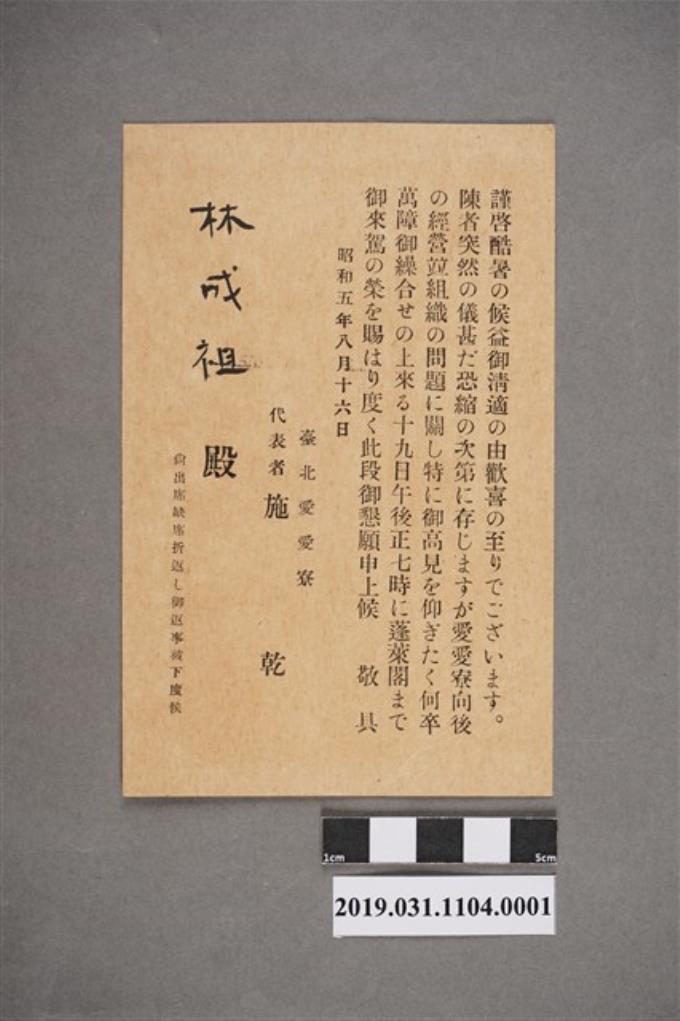 謹啓酷暑の候益御淸適の由歡喜の至りでございます。
陳者突然の儀甚だ恐縮の次第に存じますが愛愛寮向後
の經營竝組織の問題に關し特に御高見を仰ぎたく何卒
萬障御繰合せの上來る十九日午後正七時に蓬萊閣まで
御來駕の榮を賜はり度く此段御懇願申上候 敬具
昭和五年八月十六日
臺北愛愛寮
代表者 施 乾
林成祖 殿
尙出席缺席折返し御返事被下度候
1cm 5cm
2019.031.1104.0001